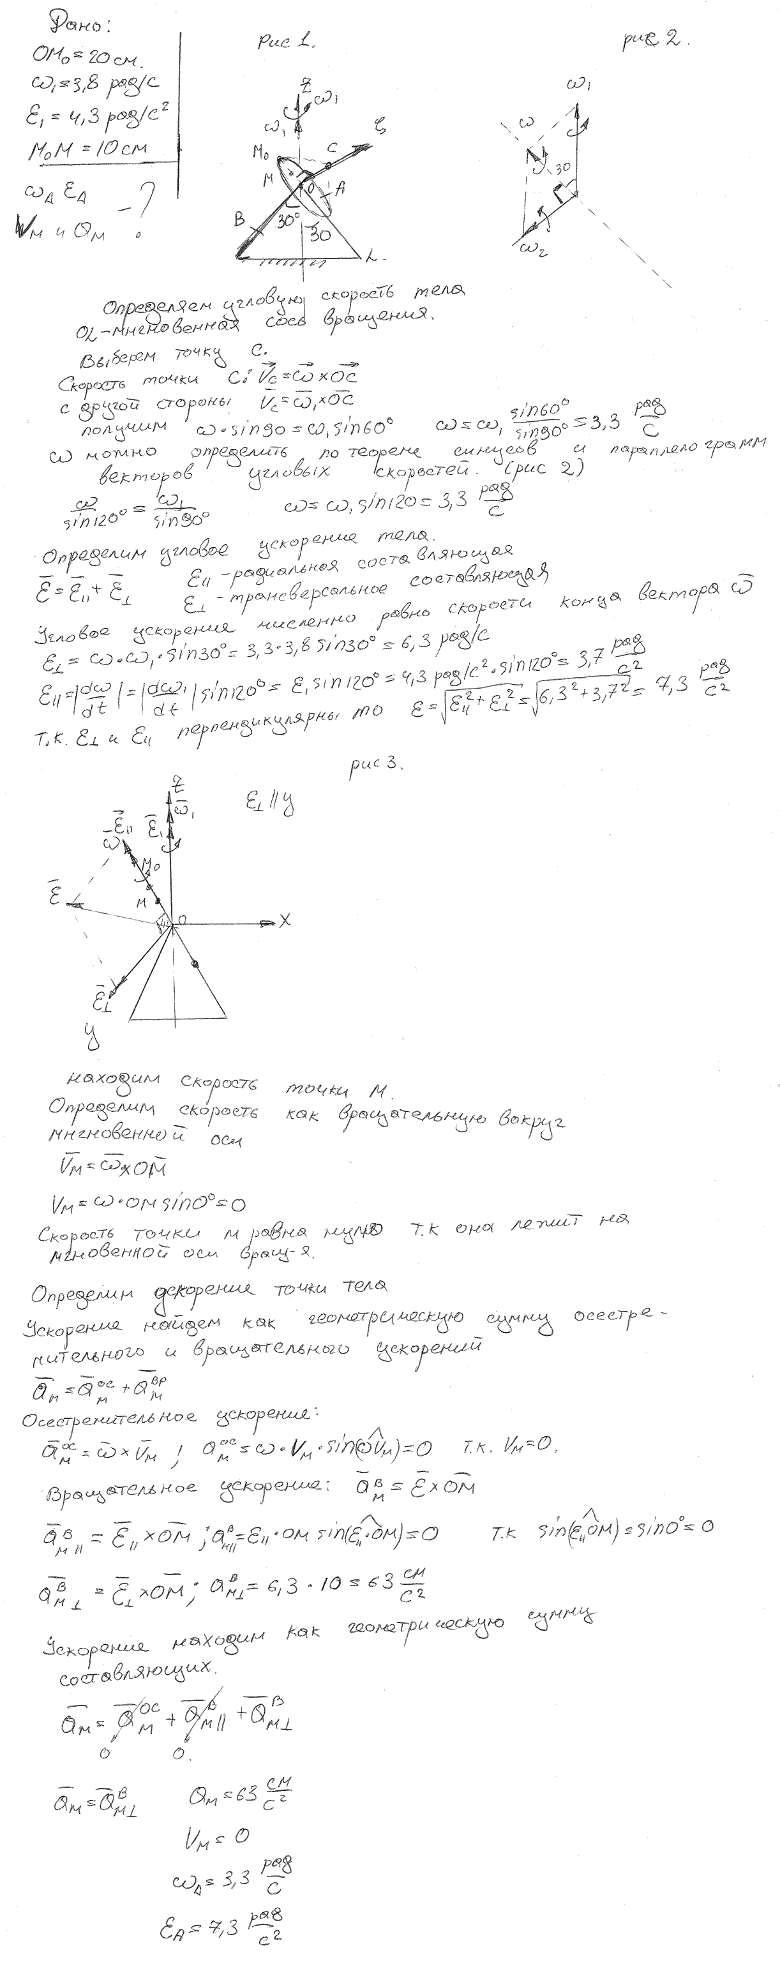 Дано:
OM₀=20 см.
ω₁=3,8 рад/с
ε₁=4,3 рад/с²
M₀M=10 см
ω_A ε_A
V_M и a_M - ?
Рис 1.
Z
ω₁
ω₁
ζ
M₀
C
M
O
A
B
30°
30
L.
рис 2.
ω₁
ω
30
ω₂
Определяем угловую скорость тела
OL-мгновенная ось вращения.
Выберем точку C.
Скорость точки C: V̄c=ω̄×OC
с другой стороны V̄c=ω̄₁×OC
получим ω·sin90=ω₁sin60° ω=ω₁ sin60°/sin90°=3,3 рад/с
ω можно определить по теореме синусов и параллелограмм
векторов угловых скоростей. (рис 2)
ω/sin120°=ω₁/sin90° ω=ω₁sin120=3,3 рад/с
Определим угловое ускорение тела.
ε̄=ε̄||+ε̄⊥ ε|| -радиальная составляющая
ε⊥ -трансверсальное составляющая
Угловое ускорение численно равно скорости конца вектора ω̄
ε⊥=ω·ω₁·sin30°=3,3·3,8sin30°=6,3 рад/с
ε||=|dω/dt|=|dω₁/dt|sin120°=ε₁sin120°=4,3 рад/с²·sin120°=3,7 рад/с²
т.к. ε⊥ и ε|| перпендикулярны то ε=√(ε||²+ε⊥²)=√(6,3²+3,7²)=7,3 рад/с²
рис 3.
Z
ω̄₁
ε⊥||y
ε̄||
ε̄₁
ω̄
M₀
ε̄
M
O
X
ε̄⊥
y
находим скорость точки M.
Определим скорость как вращательную вокруг
мгновенной оси
V̄_M=ω̄×OM̄
V_M=ω·OM sin0°=0
Скорость точки M равна нулю т.к она лежит на
мгновенной оси вращ-я.
Определим ускорение точки тела
Ускорение найдем как геометрическую сумму осестре-
мительного и вращательного ускорений
ā_M=ā_M^ос+ā_M^вр
Осестремительное ускорение:
ā_M^ос=ω̄×V̄_M; a_M^ос=ω·V_M·sin(ω^V_M)=0 т.к. V_M=0.
Вращательное ускорение: ā_M^в=ε̄×OM̄
ā_M||^в=ε̄||×OM̄; a_M||^в=ε||·OM sin(ε||^OM)=0 т.к sin(ε||^OM)=sin0°=0
ā_M⊥^в=ε̄⊥×OM̄; a_M⊥^в=6,3·10=63 см/с²
Ускорение находим как геометрическую сумму
составляющих.
ā_M=ā_M^ос+ā_M||^в+ā_M⊥^в
0 0.
ā_M=ā_M⊥^в a_M=63 см/с²
V_M=0
ω_A=3,3 рад/с
ε_A=7,3 рад/с²